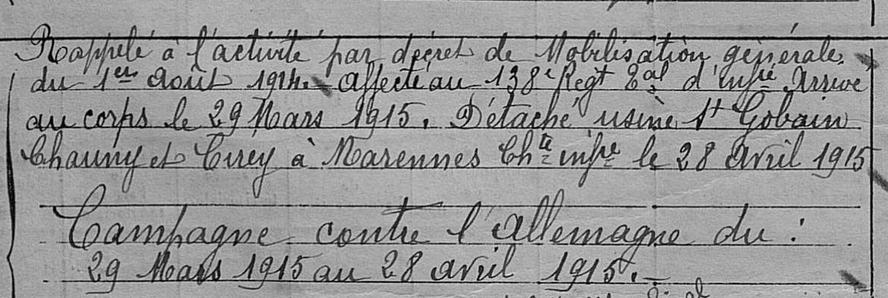 Rappelé à l'activité par décret de Mobilisation générale
du 1er Août 1914. Affecté au 138e Regt Tal d'Infie Arrivé
au corps le 29 Mars 1915. Détaché usine St Gobain
Chauny et Cirey à Marennes Chte infre le 28 Avril 1915
Campagne contre l'Allemagne du :
29 Mars 1915 au 28 Avril 1915.